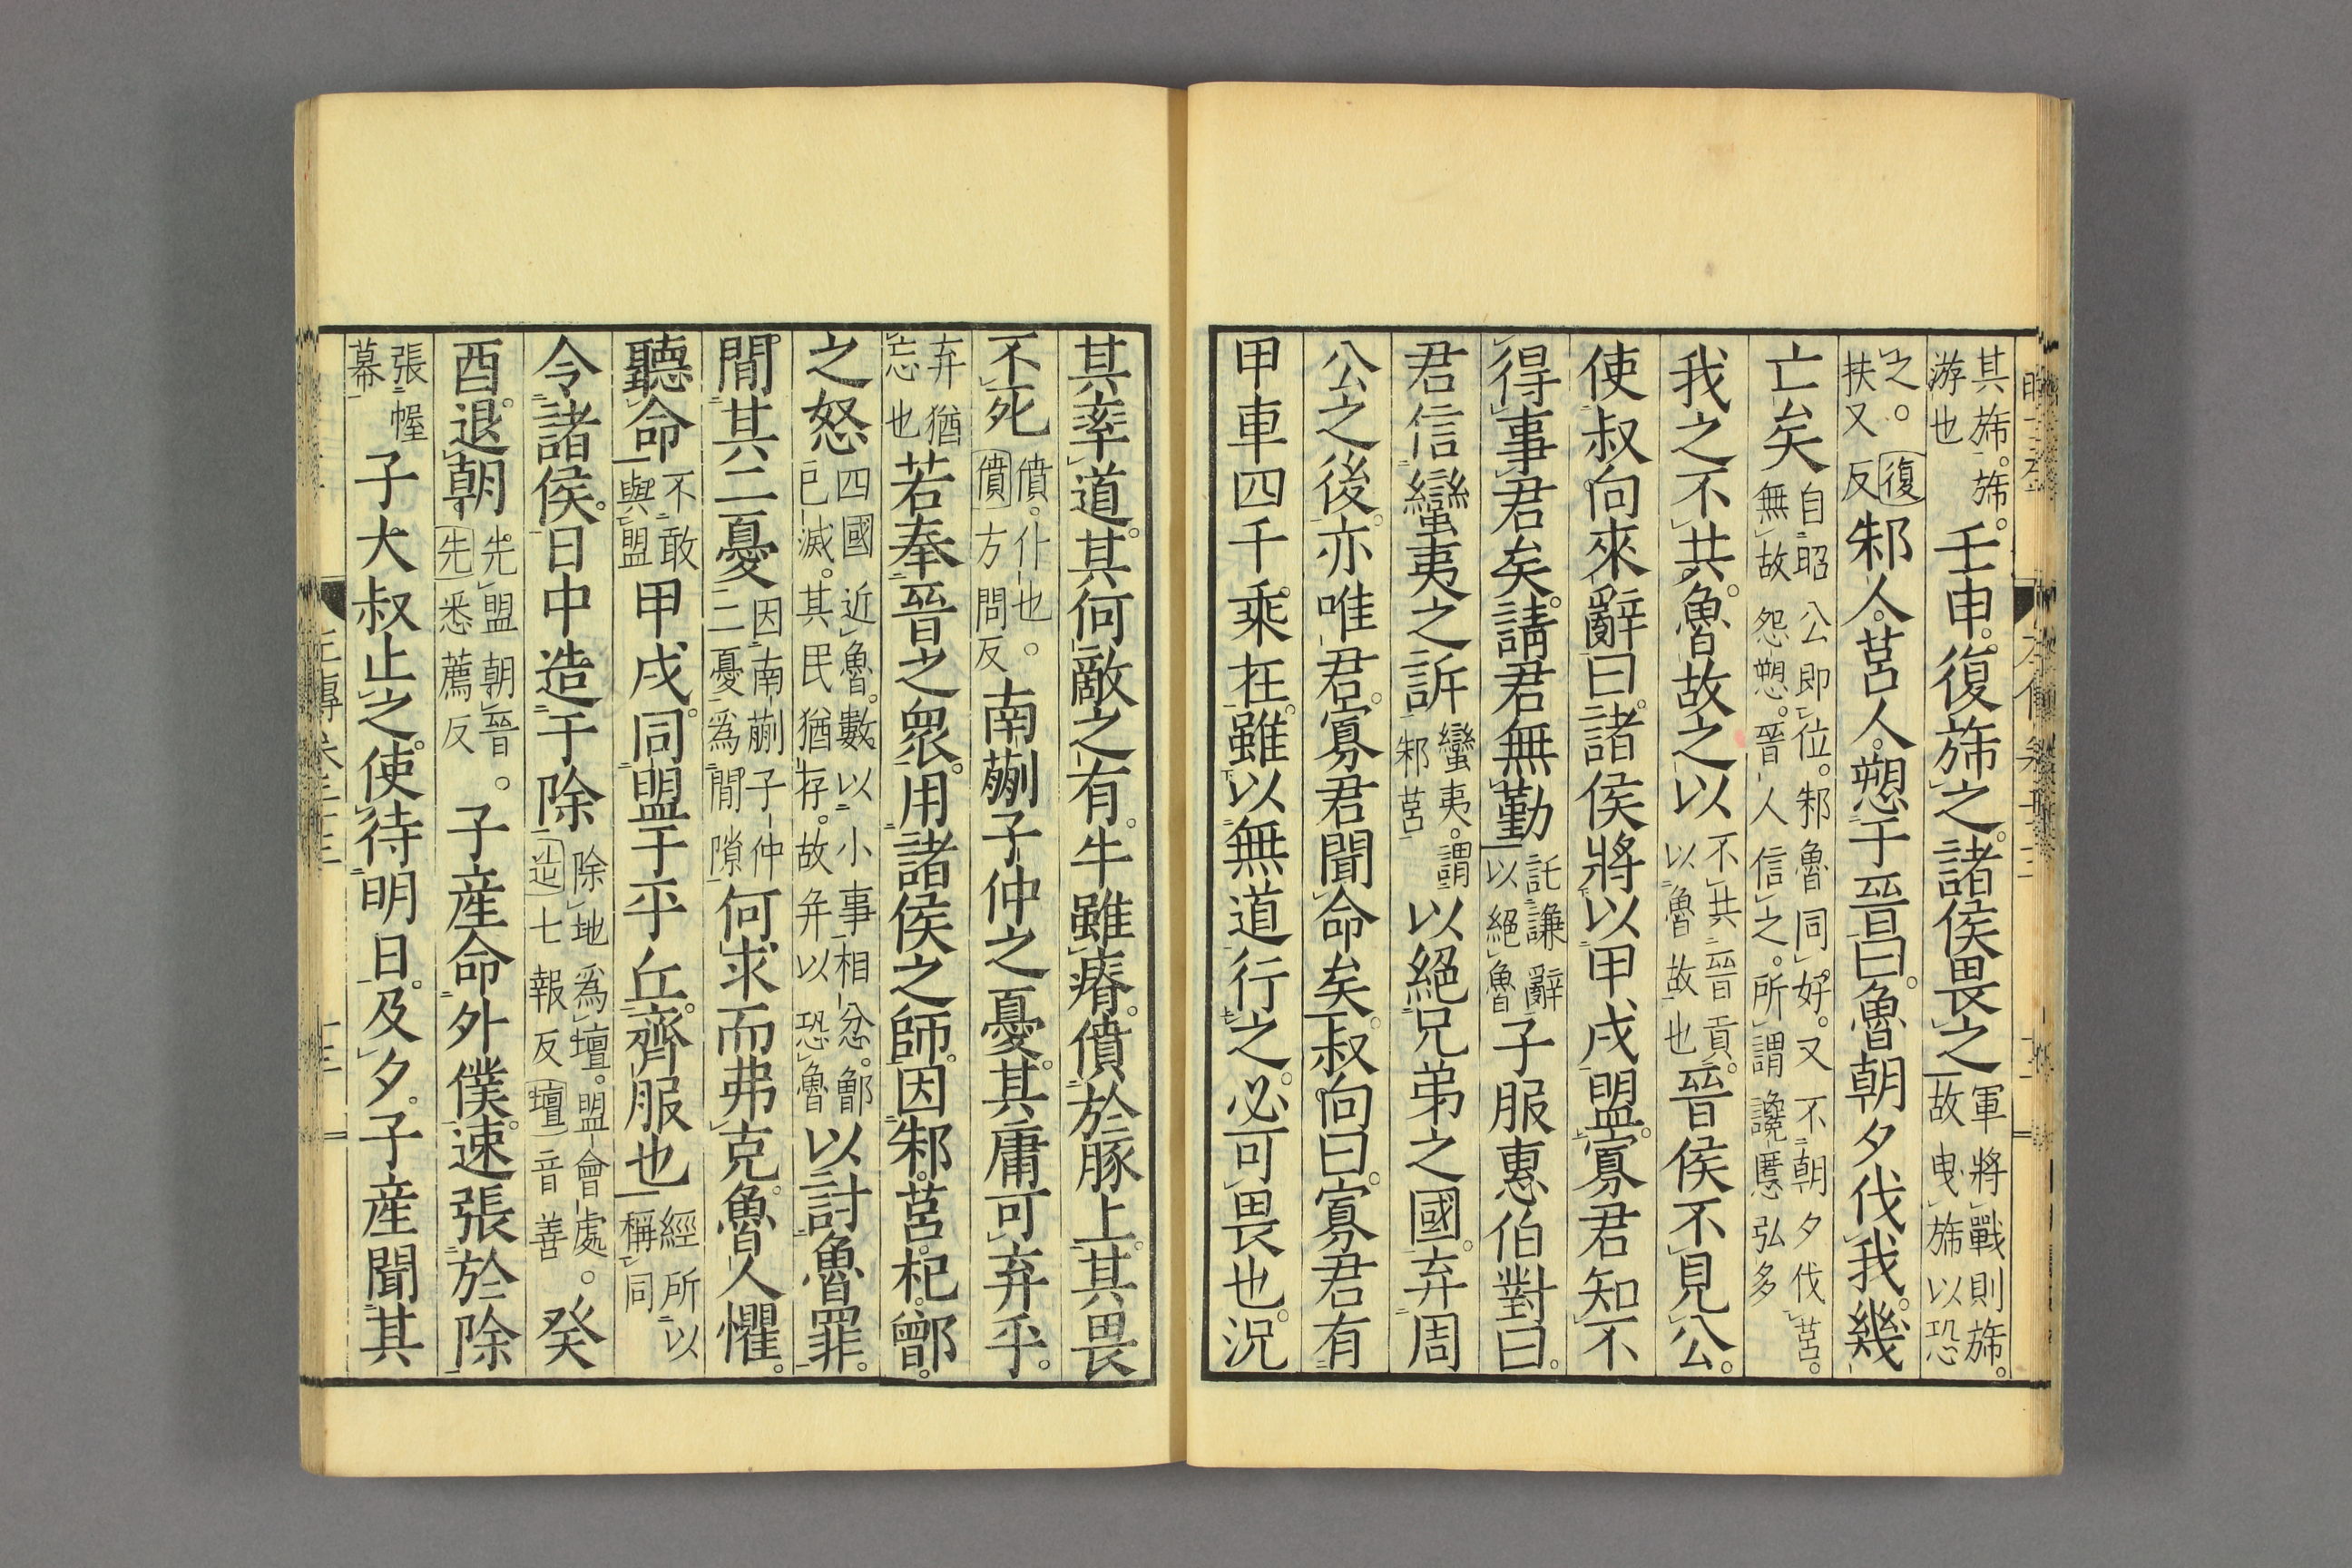 其旆。旆。游也壬申。復旆之。諸侯畏之軍將戰則旆。故曳旆以恐
之。復扶又反邾人。莒人。愬于晉曰。魯朝夕伐我。幾
亡矣自昭公卽位。邾魯同好。又不朝夕伐莒。無故怨愬。晉人信之。所謂讒慝弘多
我之不共。魯故之以不共晉貢。以魯故也晉侯不見公。
使叔向來辭曰。諸侯將以甲戌盟。寡君知不
得事君矣。請君無勤託謙辭以絕魯子服惠伯對曰。
君信蠻夷之訴蠻夷。謂邾莒以絕兄弟之國。弃周
公之後。亦唯君。寡君聞命矣。叔向曰。寡君有
甲車四千乘在。雖以無道行之。必可畏也。況
其率道。其何敵之有。牛雖瘠。僨於豚上。其畏
不死僨。仆也。僨方問反南蒯子仲之憂。其庸可弃乎。
弃猶忘也若奉晉之眾。用諸侯之師。因邾。莒。杞。鄫。
之怒四國近魯。數以小事相忿。鄫已滅。其民猶存。故并以恐魯以討魯罪。
閒其二憂因南蒯子仲二憂爲閒隙何求而弗克。魯人懼。
聽命不敢與盟甲戌。同盟于平丘。齊服也經所以稱同
令諸侯。日中造于除除地爲壇。盟會處。造七報反壇音善。癸
酉。退朝。先盟朝晉。先悉薦反子產命外僕。速張於除
張幄幕子大叔止之。使待明日。及夕。子產聞其